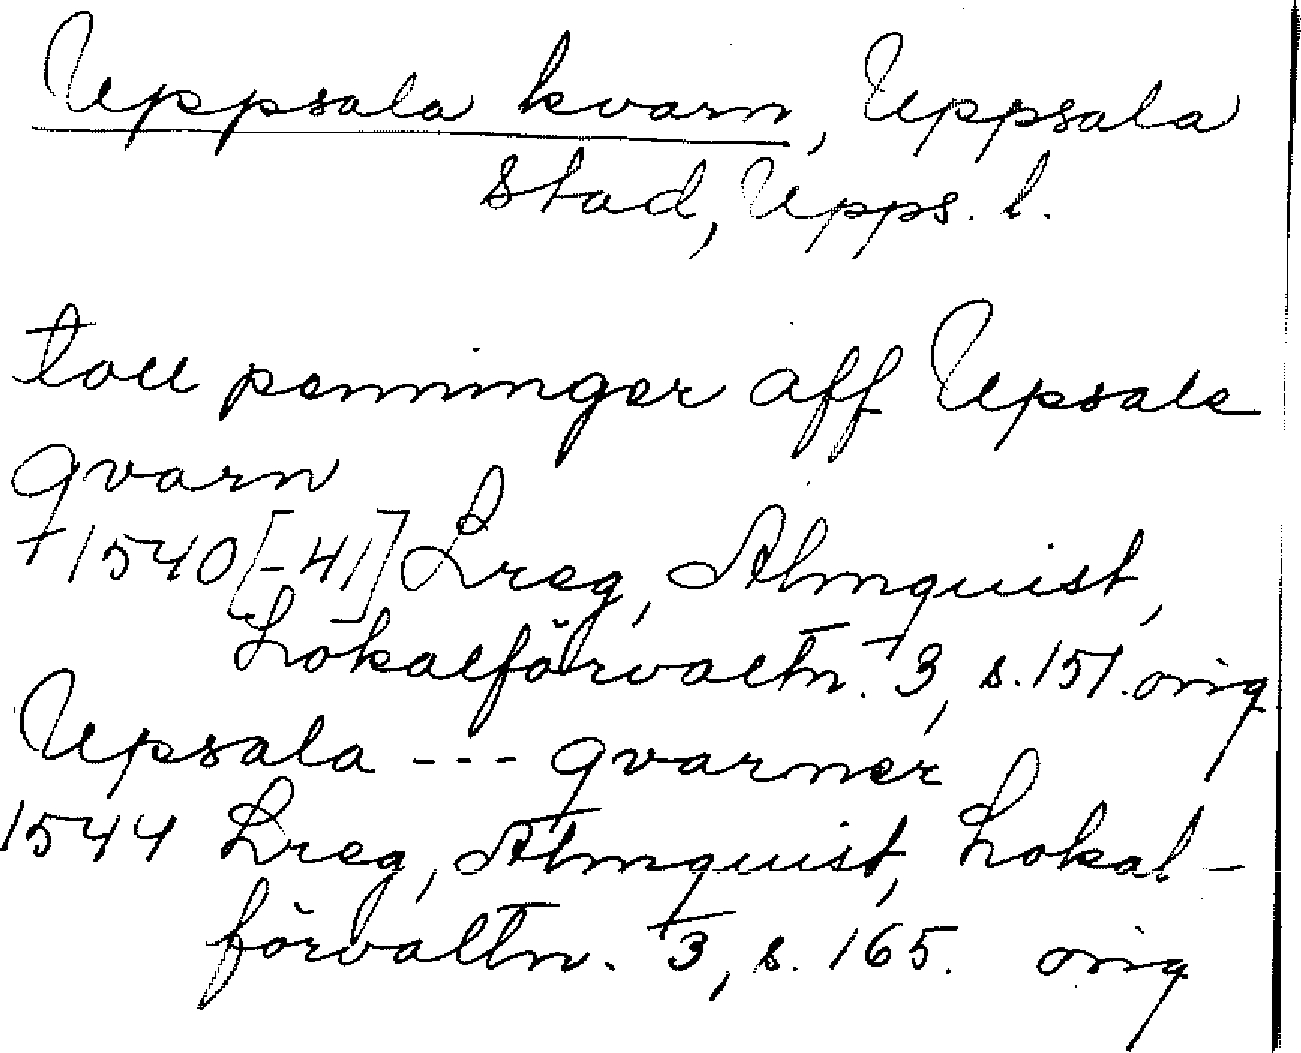 Uppsala kvarn, Uppsala
stad, Upps. l.
toll penninger aff Upsale
qvarn
1540[-41] Lreg, Almquist,
Lokalförvaltn. 3, s. 151. orig
Upsala --- qvarner
1544 Lreg, Almquist, Lokal-
förvaltn. 3, s. 165. orig